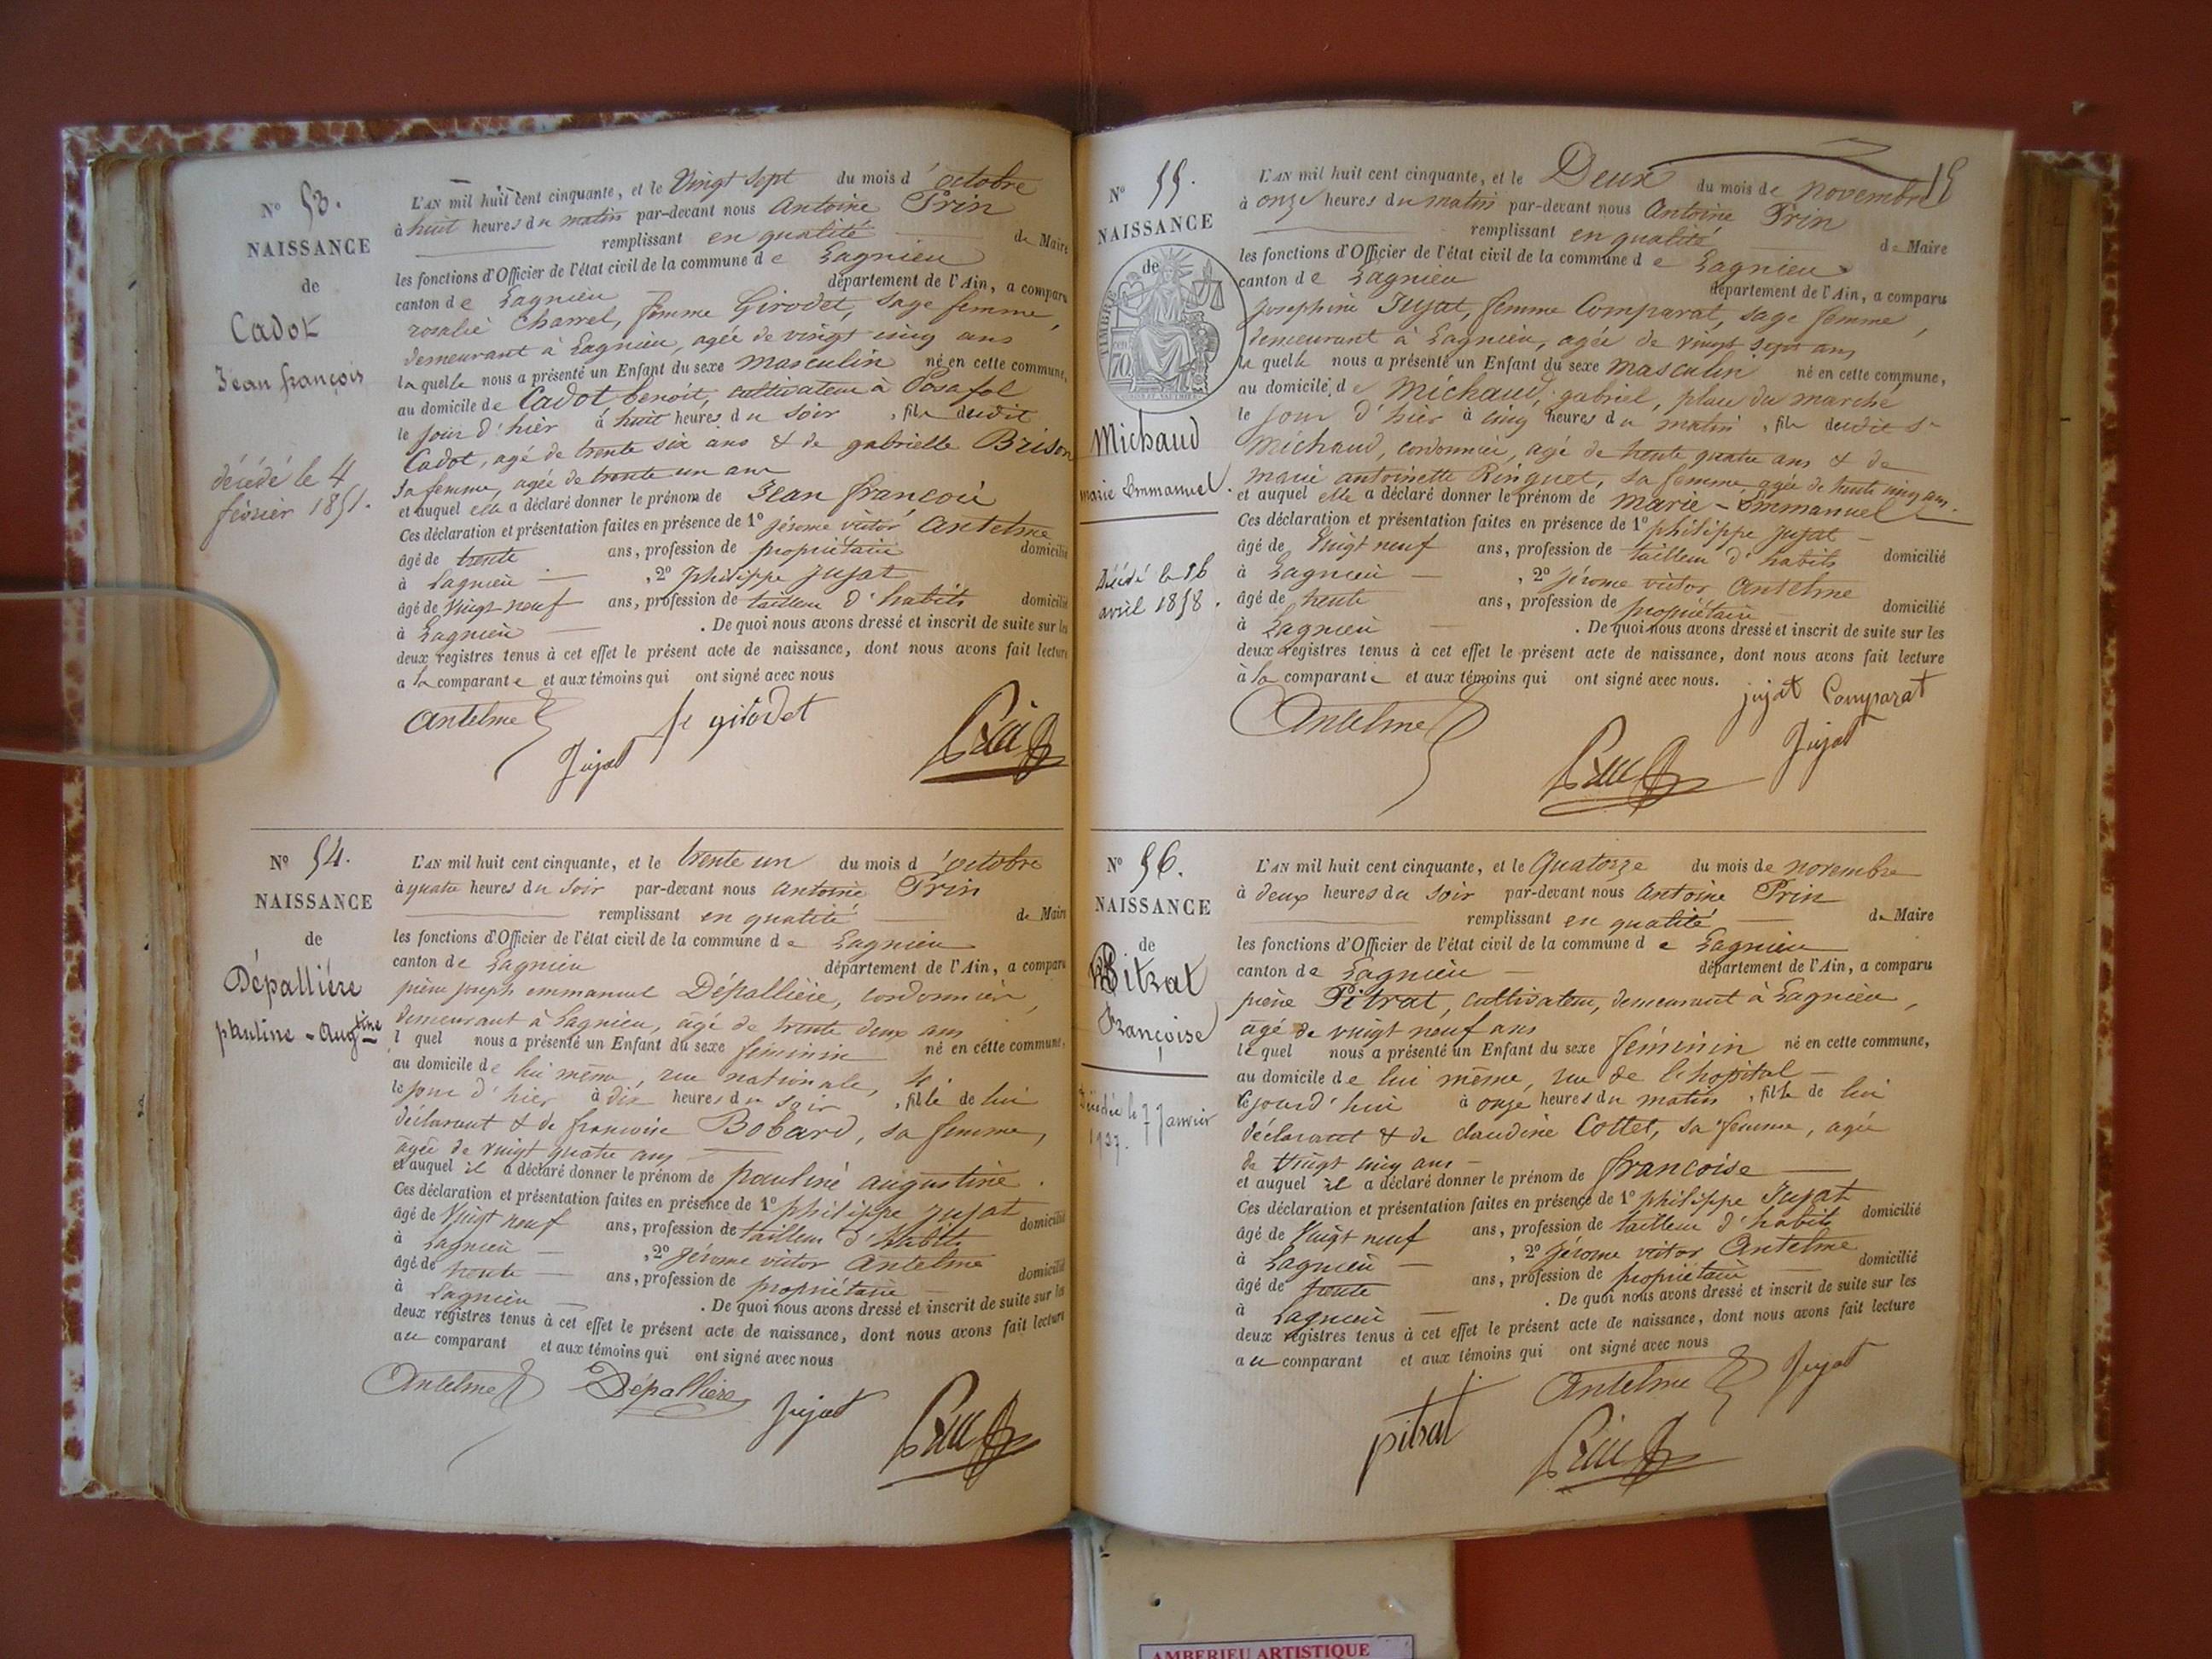 N° 53.
NAISSANCE
de
Cadot
Jean françois
décédé le 4
février 1851.
L'AN mil huit cent cinquante, et le Vingt sept du mois d'octobre
à huit heures du matin par-devant nous Antoine Prin
remplissant en qualité de Maire
les fonctions d'Officier de l'état civil de la commune de Lagnieu
canton de Lagnieu département de l'Ain, a comparu
rosalie Charrel, femme Girodet, sage femme,
demeurant à Lagnieu, agée de vingt cinq ans
laquelle nous a présenté un Enfant du sexe masculin né en cette commune,
au domicile de Cadot benoit, cultivateur à Posafol
le jour d'hier à huit heures du soir, fils dudit
Cadot, agé de trente six ans & de gabrielle Brison
sa femme, agée de trente un ans
et auquel elle a déclaré donner le prénom de Jean françois
Ces déclaration et présentation faites en présence de 1° jérome victor Antelme
âgé de trente ans, profession de propriétaire domicilié
à Lagnieu, 2° philippe Jujat
âgé de Vingt neuf ans, profession de tailleur d'habits domicilié
à Lagnieu . De quoi nous avons dressé et inscrit de suite sur les
deux registres tenus à cet effet le présent acte de naissance, dont nous avons fait lecture
a la comparante et aux témoins qui ont signé avec nous
Antelme fe girodet
Jujat Prin
N° 54.
NAISSANCE
de
Dépallière
pauline - Augtine
L'AN mil huit cent cinquante, et le trente un du mois d'octobre
à quatre heures du soir par-devant nous Antoine Prin
remplissant en qualité de Maire
les fonctions d'Officier de l'état civil de la commune de Lagnieu
canton de Lagnieu département de l'Ain, a comparu
pierre joseph emmanuel Dépallière, cordonnier,
demeurant à Lagnieu, âgé de trente deux ans
l quel nous a présenté un Enfant du sexe féminin né en cette commune,
au domicile de lui même, rue nationale,
le jour d'hier à dix heures du soir, fille de lui
déclarant & de françoise Bobard, sa femme,
âgée de vingt quatre ans
et auquel il a déclaré donner le prénom de pauline augustine.
Ces déclaration et présentation faites en présence de 1° philippe Jujat
âgé de Vingt neuf ans, profession de tailleur d'habits domicilié
à Lagnieu, 2° Jérome victor Antelme
âgé de trente ans, profession de propriétaire domicilié
à Lagnieu . De quoi nous avons dressé et inscrit de suite sur les
deux registres tenus à cet effet le présent acte de naissance, dont nous avons fait lecture
au comparant et aux témoins qui ont signé avec nous
Antelme Dépallière Jujat Prin
N° 55.
NAISSANCE
de
TIMBRE
Michaud
marie Emmanuel.
Décédé le 16
avril 1858.
L'AN mil huit cent cinquante, et le Deux du mois de novembre
à onze heures du matin par-devant nous Antoine Prin
remplissant en qualité de Maire
les fonctions d'Officier de l'état civil de la commune de Lagnieu
canton de Lagnieu département de l'Ain, a comparu
Josephine Jujat, femme Comparat, sage femme,
demeurant à Lagnieu, agée de vingt sept ans
la quelle nous a présenté un Enfant du sexe masculin né en cette commune,
au domicile de Michaud, gabriel, place du marché
le jour d'hier à cinq heures du matin, fils dudit Sr
Michaud, cordonnier, agé de trente quatre ans & de
marie antoinette Ringuet, sa femme agée de trente cinq ans.
et auquel elle a déclaré donner le prénom de marie - Emmanuel
Ces déclaration et présentation faites en présence de 1° philippe jujat
âgé de Vingt neuf ans, profession de tailleur d'habits domicilié
à Lagnieu, 2° jérome victor Antelme
âgé de trente ans, profession de propriétaire domicilié
à Lagnieu . De quoi nous avons dressé et inscrit de suite sur les
deux registres tenus à cet effet le présent acte de naissance, dont nous avons fait lecture
à la comparante et aux témoins qui ont signé avec nous.
jujat Comparat
Antelme Prin Jujat
N° 56.
NAISSANCE
de
Pitrat
Françoise
Décédée le 7 Janvier
1937.
L'AN mil huit cent cinquante, et le Quatorze du mois de novembre
à deux heures du soir par-devant nous Antoine Prin
remplissant en qualité de Maire
les fonctions d'Officier de l'état civil de la commune de Lagnieu
canton de Lagnieu département de l'Ain, a comparu
pierre Pitrat, cultivateur, demeurant à Lagnieu,
âgé de vingt neuf ans
lequel nous a présenté un Enfant du sexe féminin né en cette commune,
au domicile de lui même, rue de l'hopital
cejourd'hui à onze heures du matin, fille de lui
déclarant & de claudine Collet, sa femme, agée
de Vingt cinq ans
et auquel il a déclaré donner le prénom de françoise
Ces déclaration et présentation faites en présence de 1° philippe Jujat
âgé de Vingt neuf ans, profession de tailleur d'habits domicilié
à Lagnieu, 2° Jérome victor Antelme
âgé de trente ans, profession de propriétaire domicilié
à Lagnieu . De quoi nous avons dressé et inscrit de suite sur les
deux registres tenus à cet effet le présent acte de naissance, dont nous avons fait lecture
au comparant et aux témoins qui ont signé avec nous
Antelme Jujat
pitrat Prin
AMBERIEU ARTISTIQUE